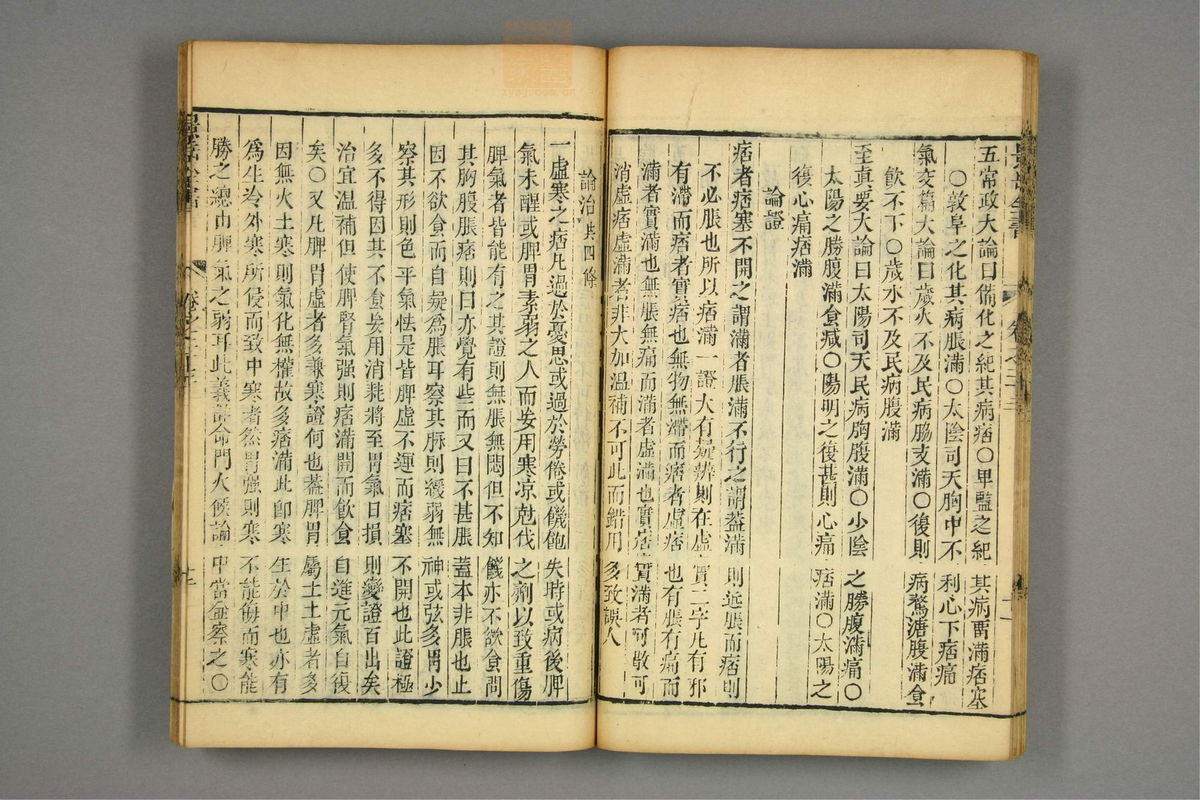 五常政大論曰備化之紀其病痞○卑監之紀其病畱滿痞塞
○敦阜之化其病脹滿○太陰司天胸中不利心下痞痛
氣交篇大論曰歲火不及民病脇支滿○復則病鶩溏腹滿食
飲不下○歲水不及民病腹滿
至真要大論曰太陽司天民病胸腹滿○少陰之勝腹滿痛○
太陽之勝腹滿食減○陽明之復甚則心痛痞滿○太陽之
復心痛痞滿
論證
痞者痞塞不開之謂滿者脹滿不行之謂葢滿則近脹而痞則
不必脹也所以痞滿一證大有疑辨則在虛實二字凡有邪
有滯而痞者實痞也無物無滯而痞者虛痞也有脹有痛而
滿者實滿也無脹無痛而滿者虛滿也實痞實滿者可散可
消虛痞虛滿者非大加温補不可此而錯用多致誤人
論治共四條
一虛寒之痞凡過於憂思或過於勞倦或饑飽失時或病後脾
氣未醒或脾胃素弱之人而妄用寒凉尅伐之劑以致重傷
脾氣者皆能有之其證則無脹無悶但不知饑亦不欲食問
其胸腹脹痞則曰亦覺有些而又曰不甚脹葢本非脹也止
因不欲食而自疑爲脹耳察其脉則緩弱無神或弦多胃少
察其形則色平氣怯是皆脾虛不運而痞塞不開也此證極
多不得因其不食妄用消耗將至胃氣日損則變證百出矣
治宜温補但使脾腎氣强則痞滿開而飲食自進元氣自復
矣○又凡脾胃虛者多兼寒證何也葢脾胃屬土土虛者多
因無火土寒則氣化無權故多痞滿此卽寒生於中也亦有
爲生冷外寒所侵而致中寒者然胃强則寒不能侮而寒能
勝之總由脾氣之弱耳此義詳命門火候論中當參察之○